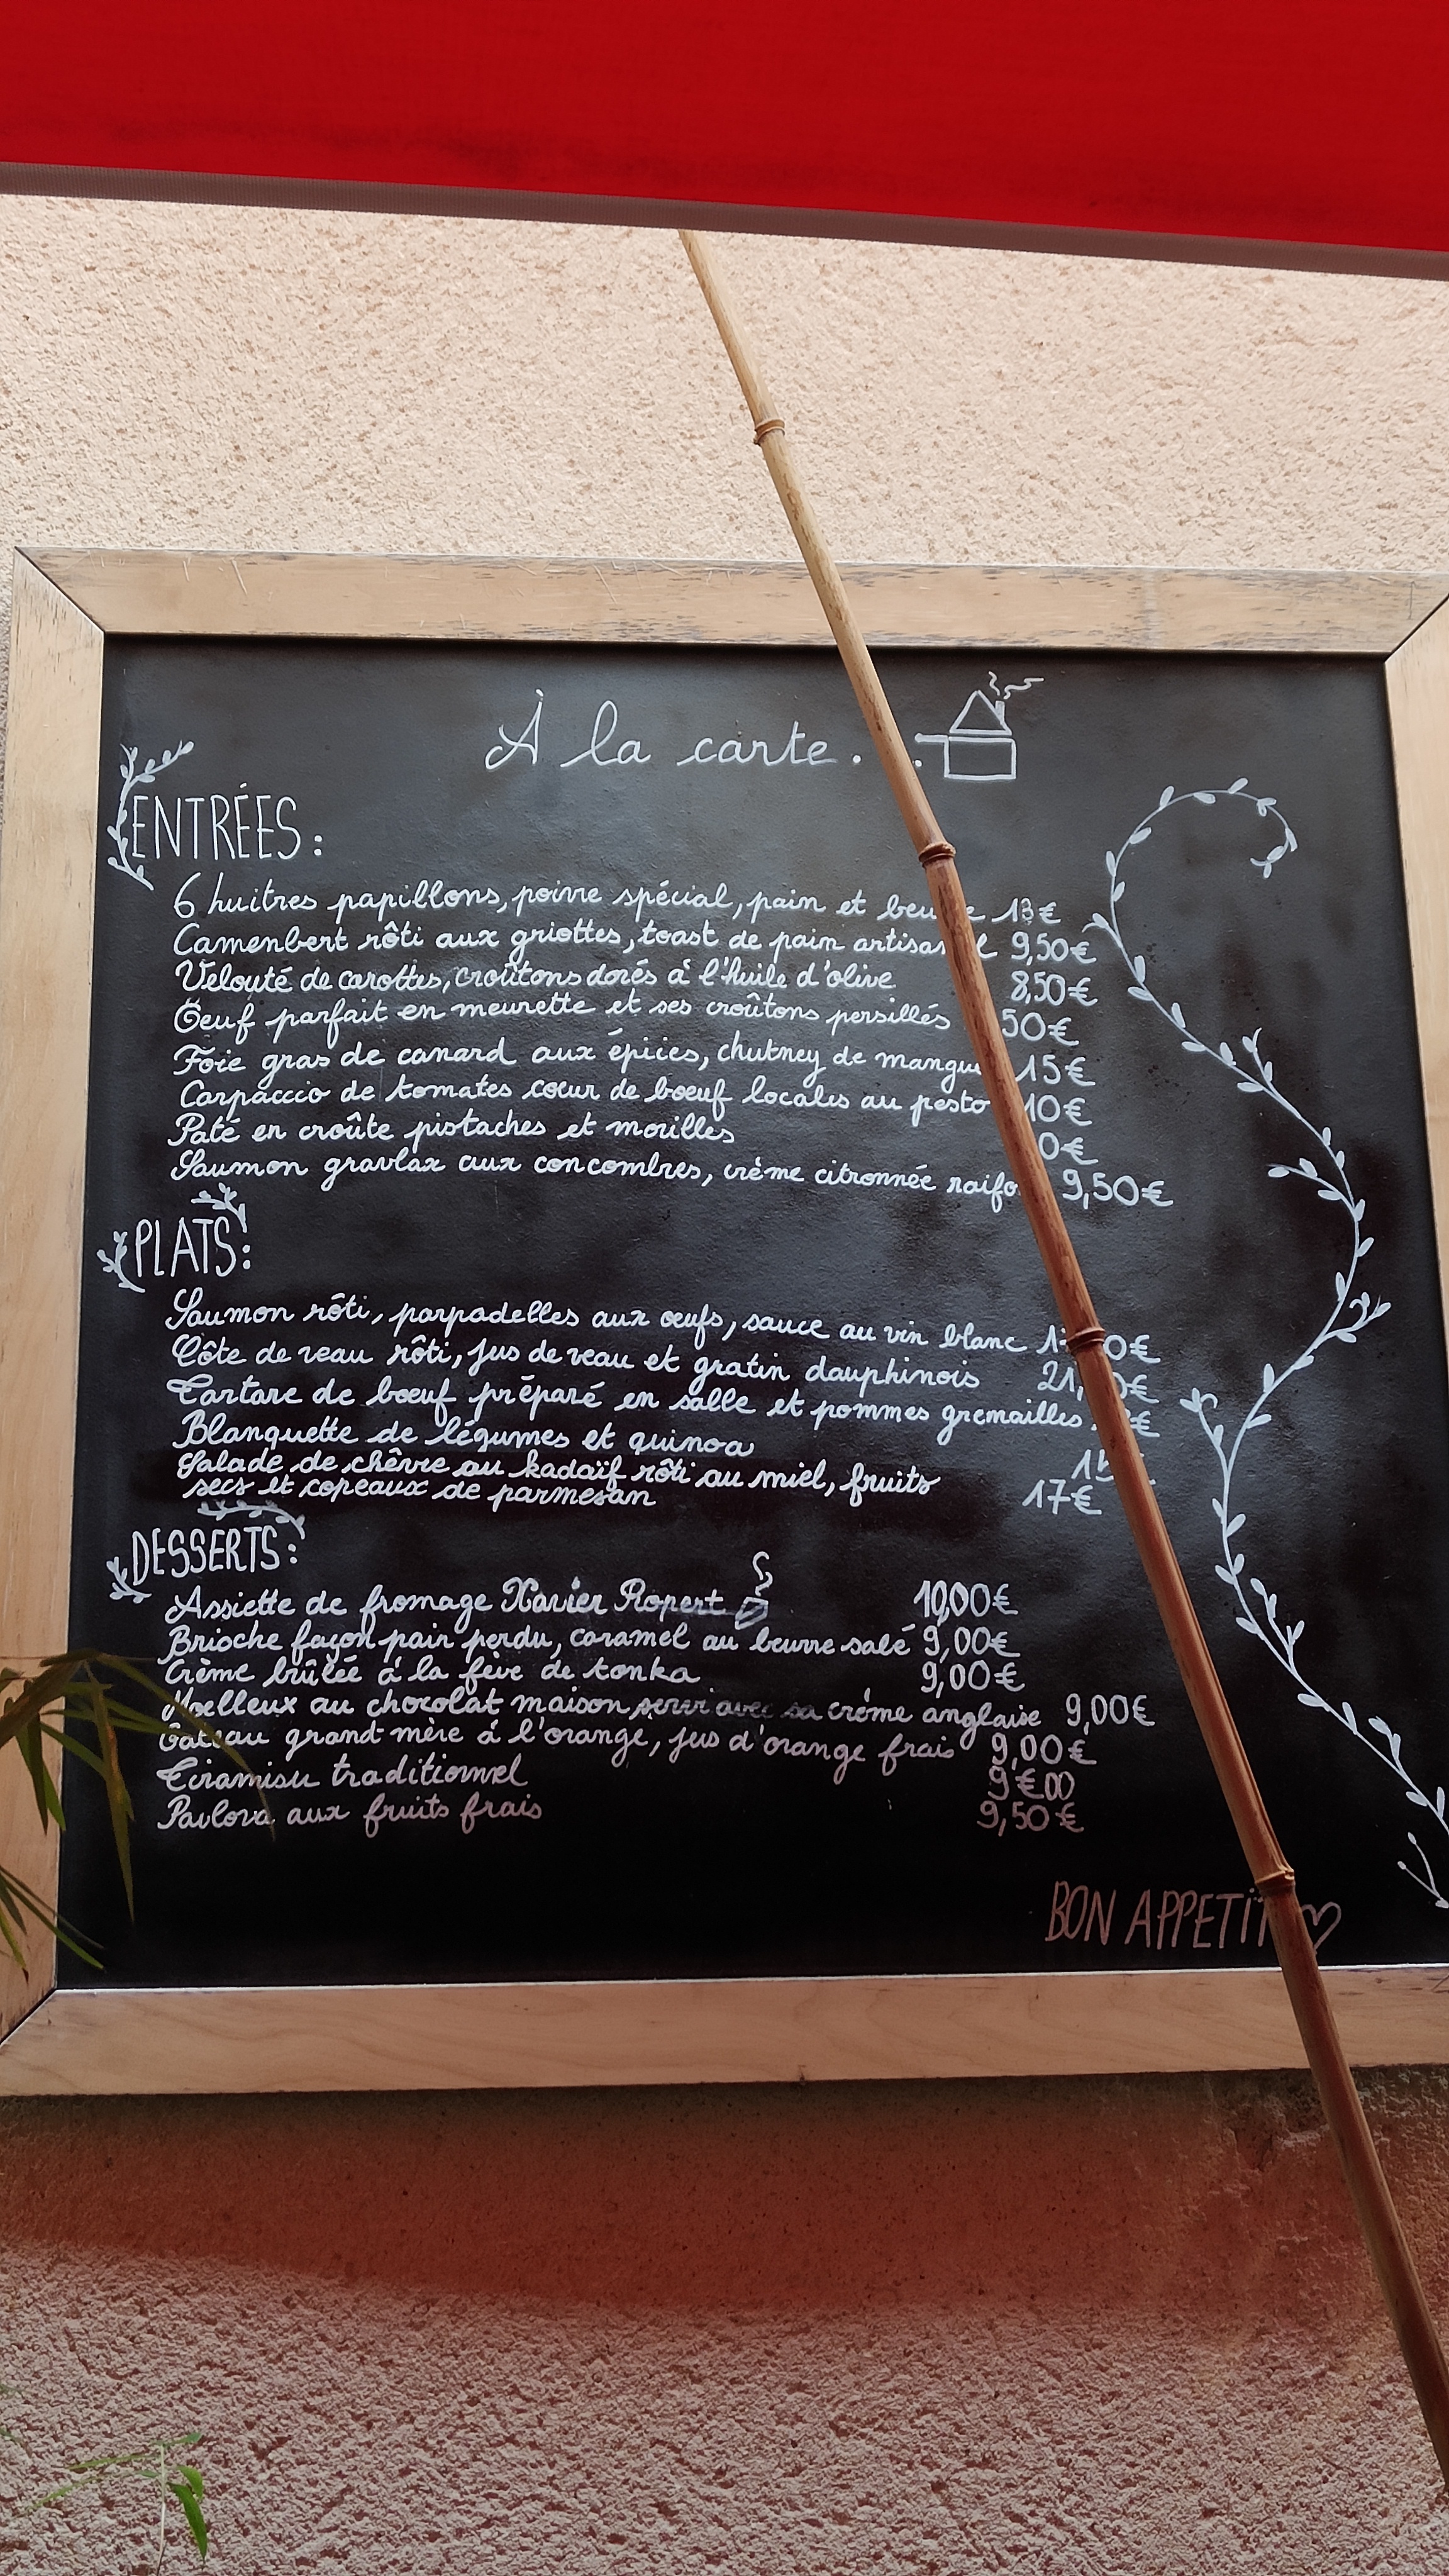 À la carte...
ENTRÉES:
6 huitres papillons, poivre spécial, pain et 13€
Camenbert rôti aux griottes, toast de pain 9,50€
Velouté de carottes, croûtons dorés à l'huile d'olive 8,50€
Oeuf parfait en meurette et ses croûtons persillés 50€
Foie gras de canard aux épices, chutney de mangue 15€
Carpaccio de tomates cœur de bœuf locales au pesto 10€
Paté en croûte pistaches et morilles 0€
Saumon gravlax aux concombres, crème citronnée 9,50€
PLATS:
Saumon rôti, parpadelles aux œufs, sauce au vin blanc
Côte de veau rôti, jus de veau et gratin dauphinois
Tartare de bœuf préparé en salle et pommes grenailles
Blanquette de légumes et quinoa
Salade de chèvre au kadaïf rôti au miel, fruits
secs et copeaux de parmesan 17€
DESSERTS:
Assiette de fromage Xavier Ropert 10,00€
Brioche façon pain perdu, caramel au beurre salé 9,00€
Crème brûlée à la fève de tonka 9,00€
Moelleux au chocolat maison servi avec sa crème anglaise 9,00€
Gâteau grand-mère à l'orange, jus d'orange frais 9,00€
Tiramisu traditionnel 9€00
Pavlova aux fruits frais 9,50€
BON APPETIT